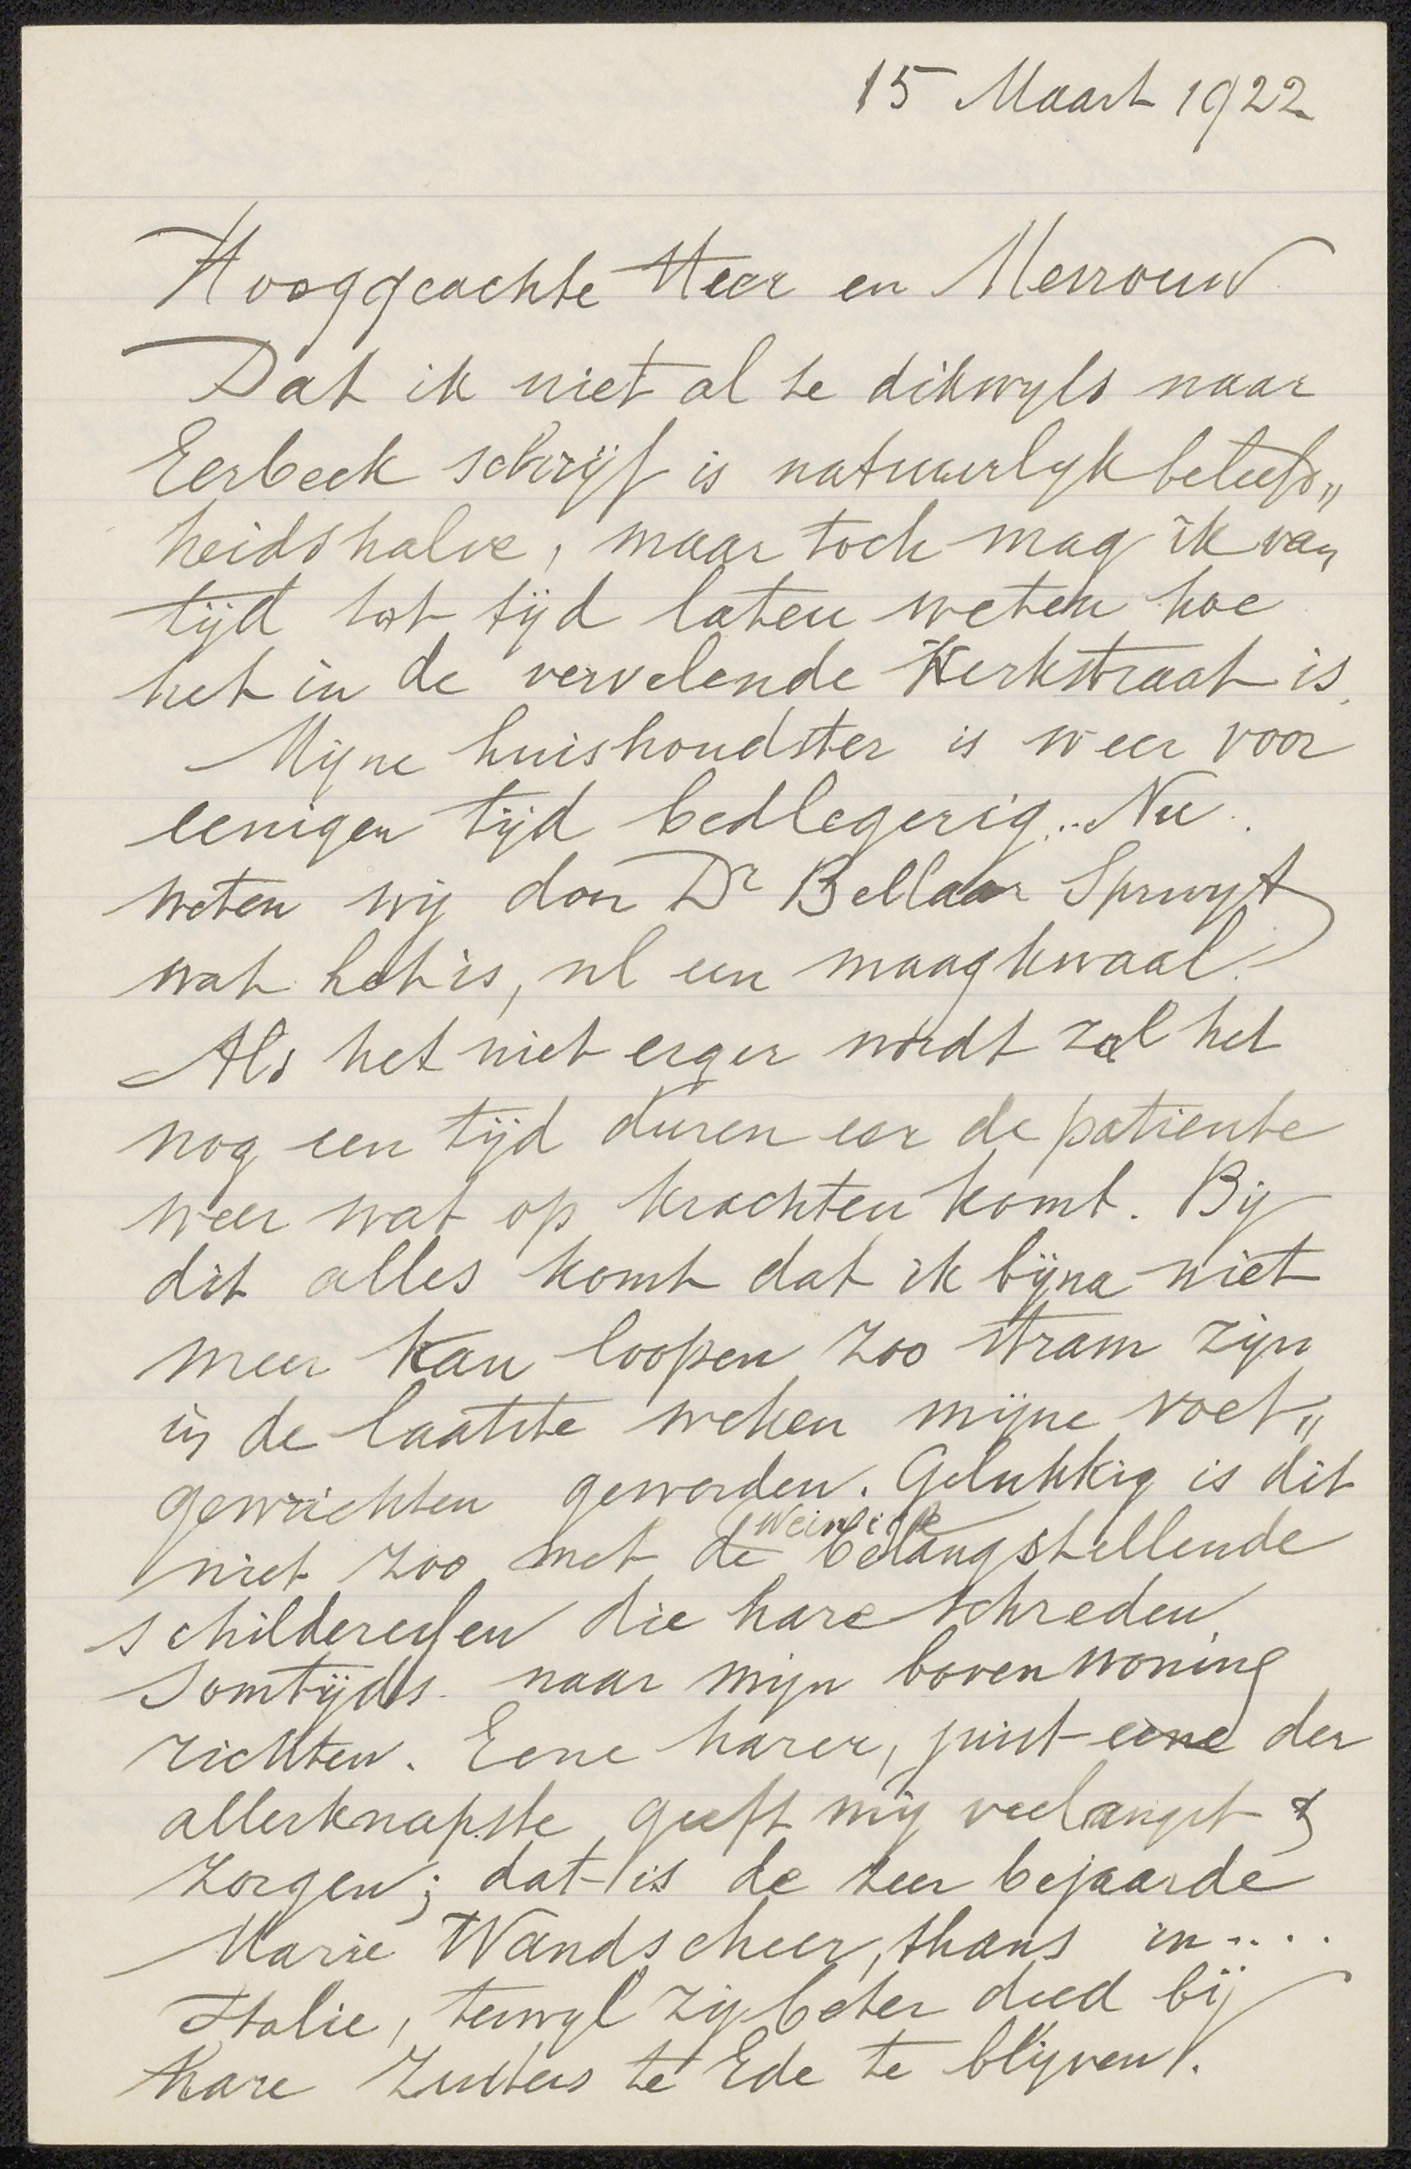 15 Maart 1922
Hooggeachte Heer en Mevrouw
Dat ik niet al te dikwyls naar
Eerbeek schrijf is natuurlyk beleefd„
heidshalve, maar toch mag ik van
tijd tot tijd laten weten hoe
het in de vervelende Kerkstraat is.
Mijne huishoudster is weer voor
eenigen tijd bedlegerig... Nu
weten wij door Dr Bellaar Spruyt
wat het is, nl een maagkwaal.
Als het niet erger wordt zal het
nog een tijd duren eer de patiente
weer wat op krachten komt. Bij
dit alles komt dat ik bijna niet
meer kan loopen zoo stram zijn
in de laatste weken mijne voet„
gewrichten geworden. Gelukkig is dit
niet zoo met de (weinige) belangstellende
schilderessen die hare schreden
somtijds naar mijn bovenwoning
richten. Eene harer, juist eene der
allerknapste geeft mij veel angst &
zorgen; dat is de zeer bejaarde
Marie Wandscheer, thans in....
Italie, terwyl zij beter deed bij
hare zusters te Ede te blijven.